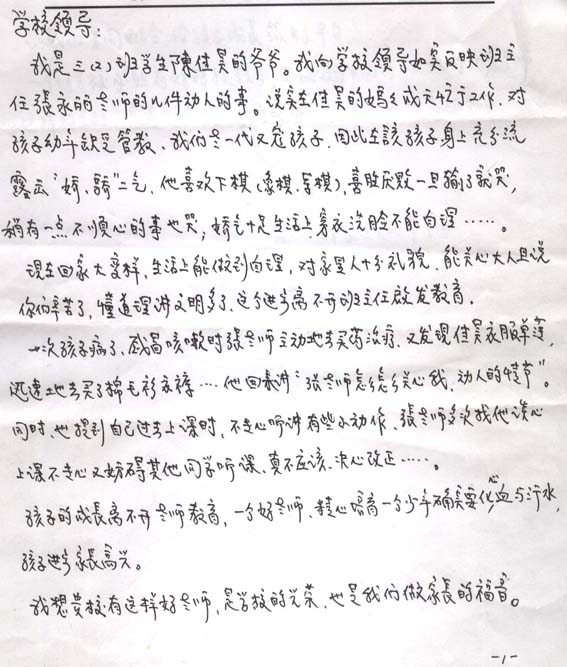 学校领导：
我是三(2)班学生陳佳昊的爷爷。我向学校領导如实反映班主
任張永丽老师的几件动人的事。说实在佳昊的媽媽成天忙于工作，对
孩子幼年缺乏管教，我们老一代又宠孩子，因此在該孩子身上充分流
露出“娇、骄”二气，他喜欢下棋(象棋、军棋)，喜胜厌败一旦输了就哭，
稍有一点不顺心的事也哭，娇气十足生活上穿衣洗脸不能自理……。
现在回家大变样，生活上能做到自理，对家里人十分礼貌，能关心大人且说
你们辛苦了，懂道理讲文明多了，这个进步离不开班主任啟发教育。
一次孩子病了，感冒咳嗽时張老师主动地去买药治病，又发现佳昊衣服单薄，
迅速地去买了棉毛衫衣裤…他回来讲“张老师怎么怎么关心我，动人的情节”。
同时，他提到自己过去上课时，不专心听讲有些小动作，張老师多次找他谈心
上课不专心又妨碍其他同学听课，真不应该，决心改正……。
孩子的成長离不开老师教育，一个好老师，精心培育一个少年确实要化心血与汗水，
孩子进步家長高兴。
我想贵校有这样好老师，是学校的光荣，也是我们做家長的福音。
-1-